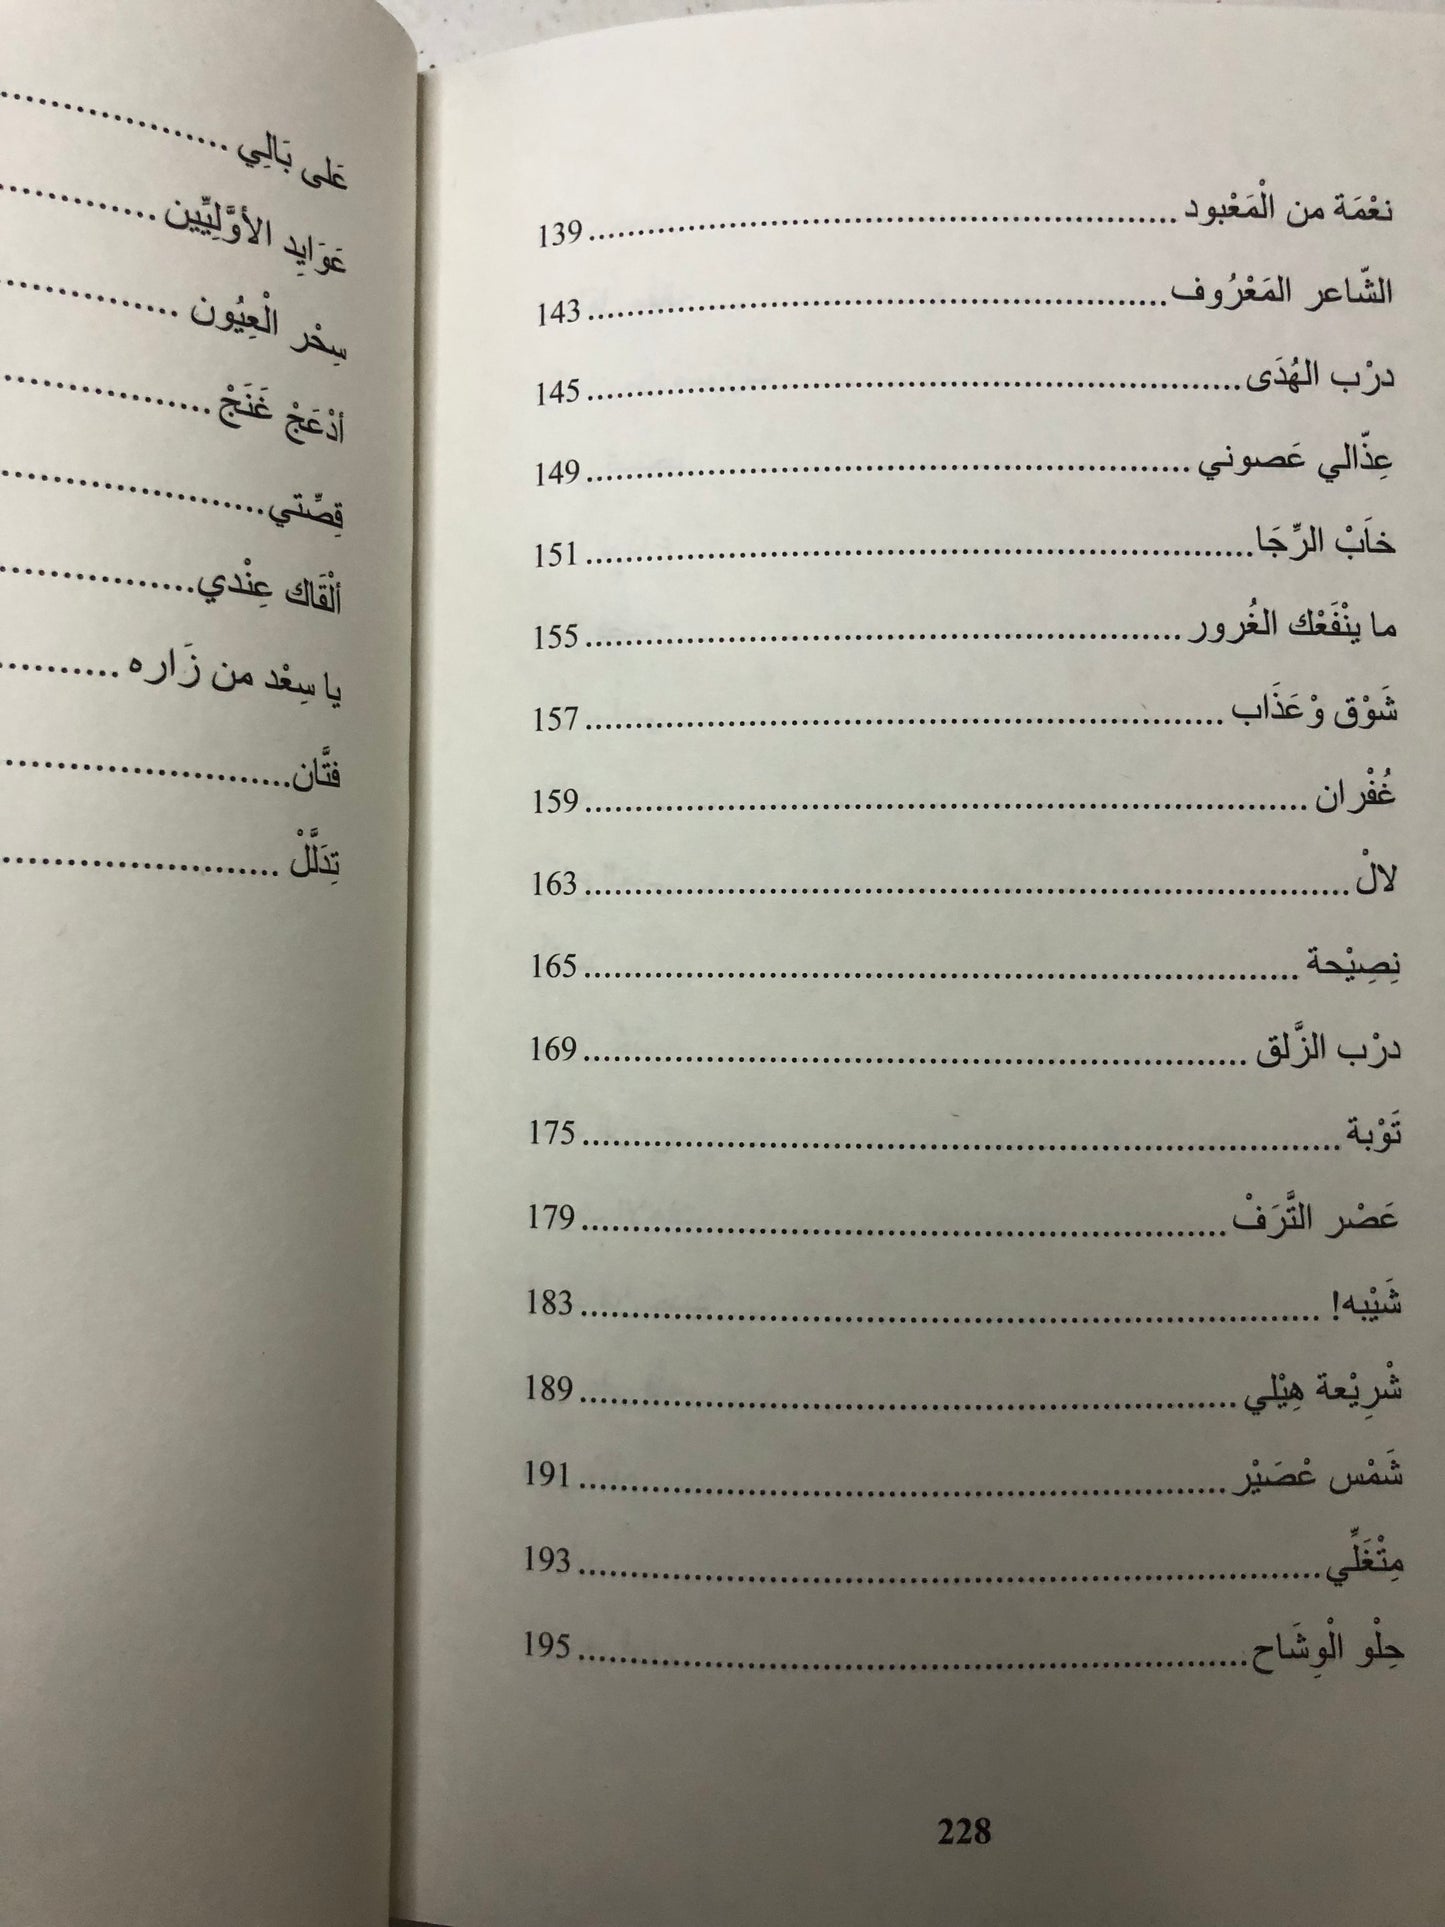 نعْمَة من الْمَعْبود ........ 139
الشّاعر المَعْرُوف ........ 143
درْب الهُدَى ........ 145
عِذّالي عَصوني ........ 149
خاَبْ الرِّجَا ........ 151
ما ينْفَعْك الغُرور ........ 155
شَوْق وْعَذَاب ........ 157
غُفْران ........ 159
لالْ ........ 163
نِصِيْحة ........ 165
درْب الزَّلق ........ 169
تَوْبة ........ 175
عَصْر التَّرَفْ ........ 179
شَيْبه! ........ 183
شْرِيْعة هِيْلي ........ 189
شَمْس عْصَيْر ........ 191
مِتْغَلِّي ........ 193
حِلْو الْوِشَاح ........ 195
228
عَلى بَالِي ........
عَوَايِد الأوَّلِيِّين ........
سِحْر الْعِيُون ........
أدْعَجْ غَنَجْ ........
قِصِّتي ........
ألْقَاك عِنْدي ........
يا سِعْد من زَاره ........
فتَّان ........
تِدَلَّلْ ........